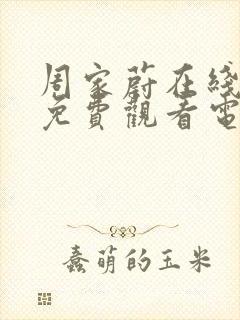 周家蔚在綫
免費觀看電
蠢萌的玉米